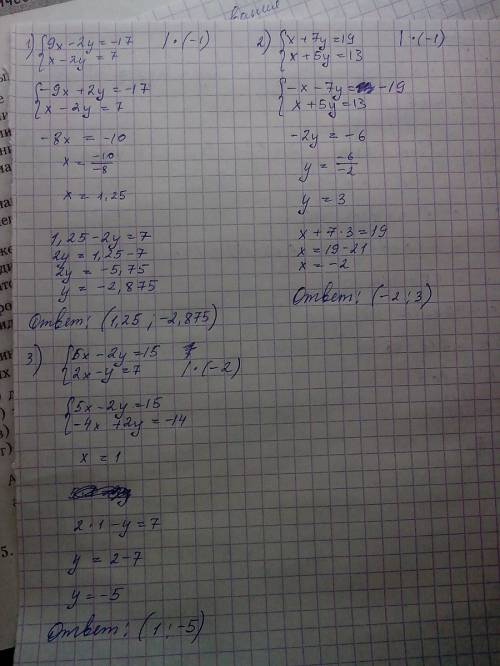 вании
1) {9x-2y=-17 | · (-1)
{x-2y=7
{-9x+2y=-17
{x-2y=7
-8x = -10
x = -10/-8
x = 1,25
1,25-2y=7
2y = 1,25-7
2y = -5,75
y = -2,875
Ответ: (1,25 ; -2,875)
2) {x+7y=19 | · (-1)
{x+5y=13
{-x-7y= -19
{x+5y=13
-2y = -6
y = -6/-2
y = 3
x+7·3=19
x=19-21
x=-2
Ответ: (-2 ; 3)
3) {5x-2y=15
{2x-y=7 | · (-2)
{5x-2y=15
{-4x+2y=-14
x = 1
2·1-y=7
y = 2-7
y = -5
Ответ: (1 ; -5)
5.